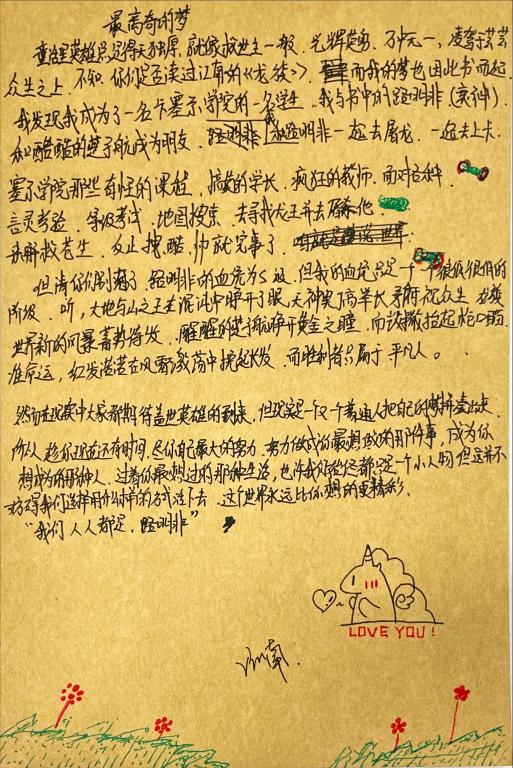 最离奇的梦
英雄总觉得无所厚,就像救世主一般,光辉英勇,万中无一,凌驾于芸芸
众生之上,不知你们是否读过江南的《龙族》,而我的梦也因此书而起,
我发现我成为了一名卡塞尔学院的一名学生,我与书中的路明非(衰仔)
和酷酷的楚子航成为朋友,我和路明非一起去屠龙,一起去上卡
塞尔学院那些奇怪的课程,搞笑的学长,疯狂的教师,面对各种
言灵考验,等级考试,地图搜索,去寻找龙王并去屠杀他
拯救苍生,反正拽,酷,帅就完事了,
但请你们别忘了,路明非的血统为S级,但我的血统只是一个很低很低的
阶级,听,大地与山之王在混沌中睁开了眼,天神奥丁高举长矛俯视众生,
世界新的风暴蓄势待发,的楚子航睁开黄金之瞳,而恺撒抬起枪口瞄
准命运,红发诺诺在风雪激荡中挽起长发,而胜利者只属于平凡人。
然而在现实中大家都期待盖世英雄的到来,但现实是一个又一个普通人把自己的走出来,
所以趁你现在还有时间,尽你自己最大的努力,努力做成你最想做的那件事,成为你
想成为的那种人,过着你最想过的那种生活,也许我们始终都只是一个小人物,但这并不
妨碍我们选择用什么样的方式活下去,这个世界永远比你想的更精彩,
“我们人人都是,路明非”
LOVE YOU!
江南